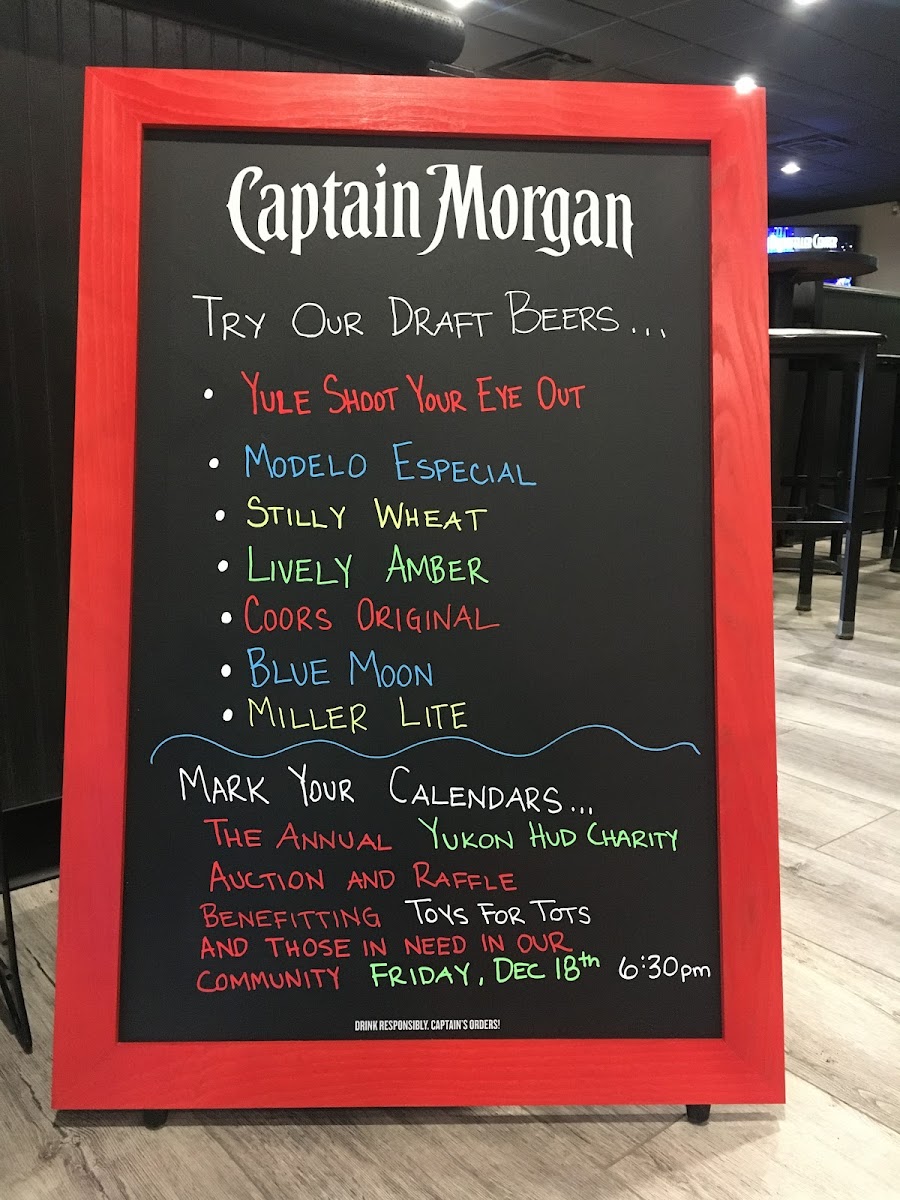 Captain Morgan
TRY OUR DRAFT BEERS...
• YULE SHOOT YOUR EYE OUT
• MODELO ESPECIAL
• STILLY WHEAT
• LIVELY AMBER
• COORS ORIGINAL
• BLUE MOON
• MILLER LITE
MARK YOUR CALENDARS...
THE ANNUAL YUKON HUD CHARITY
AUCTION AND RAFFLE
BENEFITTING TOYS FOR TOTS
AND THOSE IN NEED IN OUR
COMMUNITY FRIDAY, DEC 18th 6:30pm
DRINK RESPONSIBLY. CAPTAIN'S ORDERS!